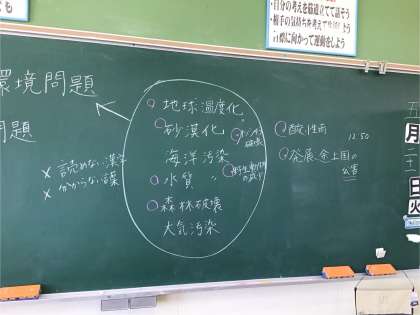 とも
・自分の考えを筋道立てて話そう
・相手の気持ちを考えて生活しよう
・目標に向かって運動をしよう
環境問題
問題
地球温度化
砂漠化
オゾン層
破壊
海洋汚染
水質 〃
野生動物
の減少
森林破壊
大気汚染
酸性雨
発展途上国の
公害
12:50
× 読めない漢字
× 分からない言葉
五
月
二十
日
火